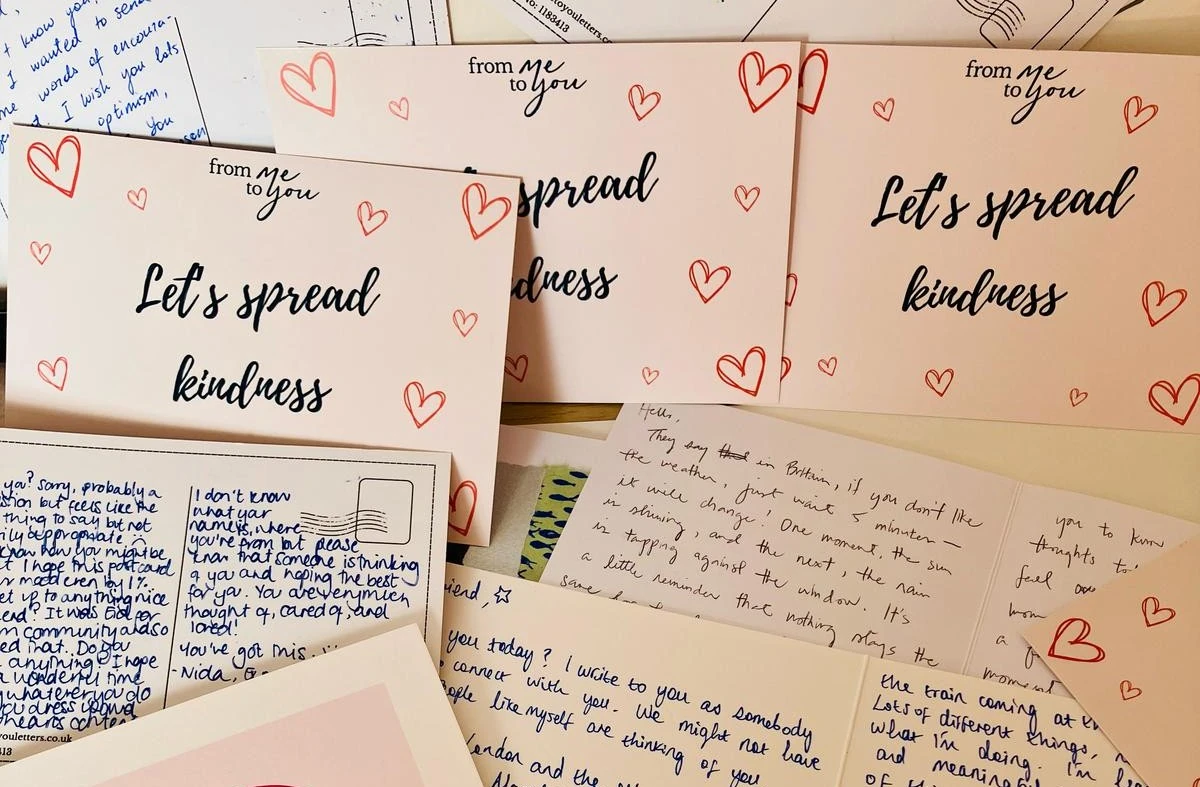 t know you,
I wanted to send
words of encoura-
I wish you lots
optimism,
You
toyouletters.co
No: 1183413
from me
to you
Let's spread
kindness
from me
to you
spread
kindness
from me
to you
Let's spread
kindness
you? Sorry, probably a
but feels like the
thing to say but not
appropriate.
know how you might be
I hope this postcard
mood even by 1%.
get up to anything nice
end? It was Eid for
community and so
Do you
anything? I hope
a wonderful time
whatever you do
you dress up and
hearts content
youletters.co.uk
I don't know
what your
name is, where
you're from but please
know that someone is thinking
of you and hoping the best
for you. You are very much
thought of, cared of, and
loved!
You've got this
-Nida,
Hello,
They say in Britain, if you don't like
the weather, just wait 5 minutes—
it will change. One moment, the sun
is shining, and the next, the rain
is tapping against the window. It's
a little reminder that nothing stays the
same
you to know
thoughts to
feel
mom
a
moment
friend,
you today? I write to you as somebody
connect with you. We might not have
people like myself are thinking of you
London and the
the train coming at
Lots of different things,
what I'm doing. I'm
and meaningful
of